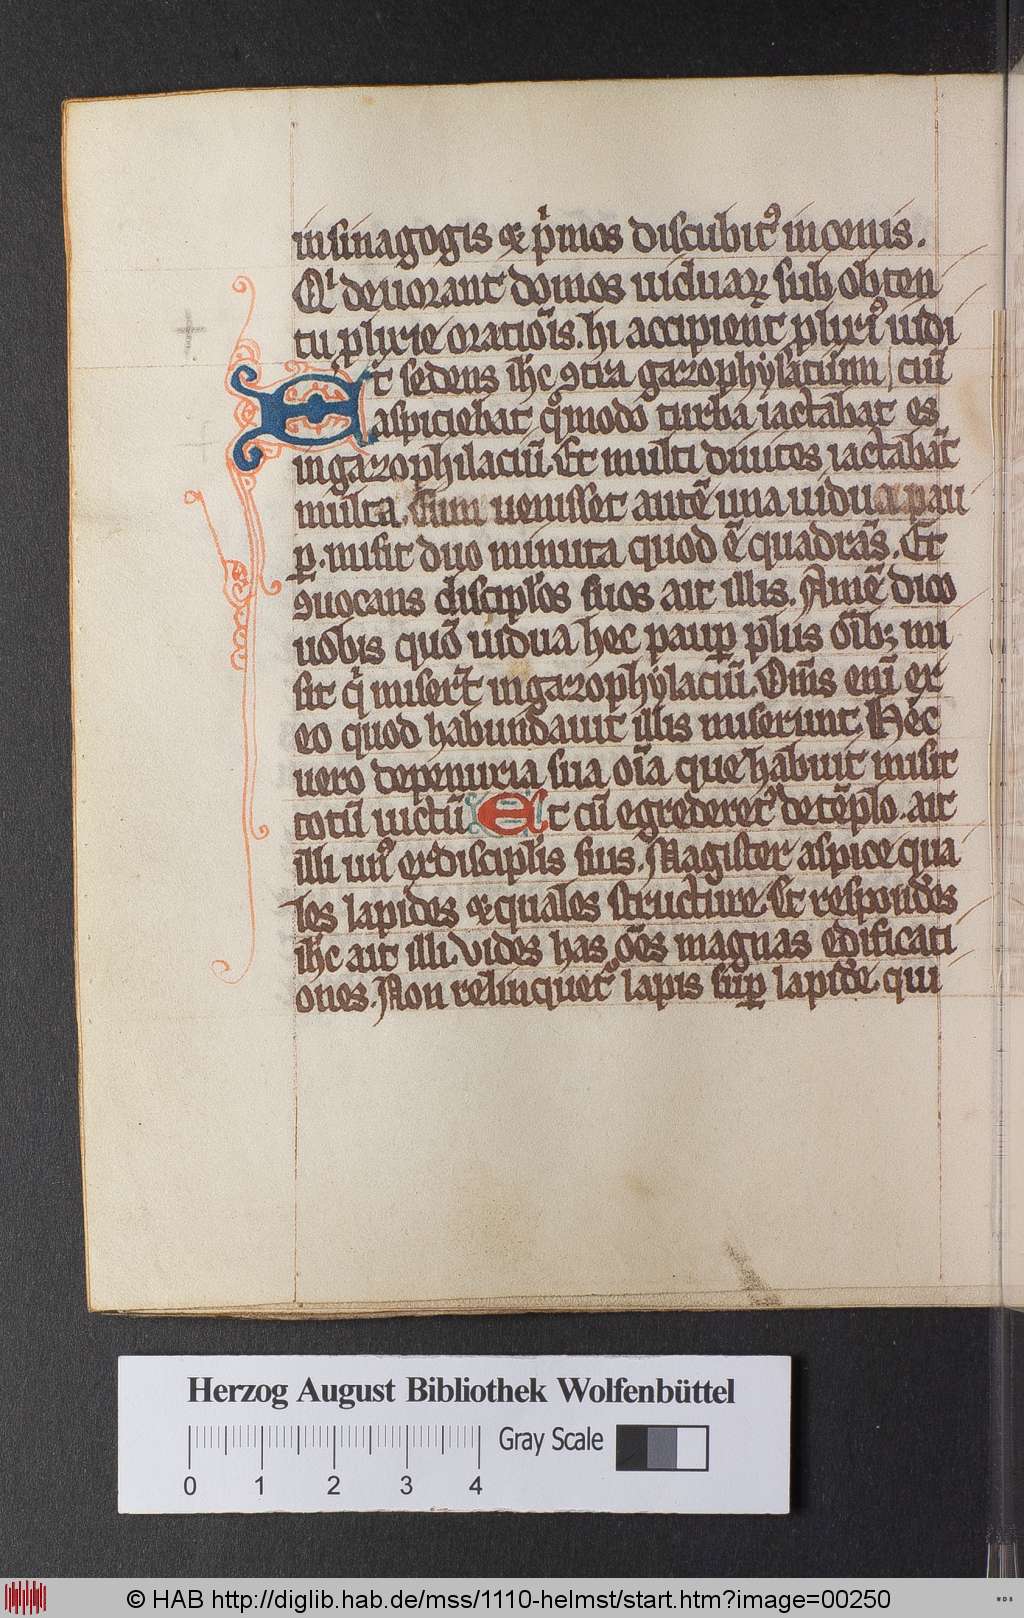 in sinagogis ⁊ pⁱmos discubit᷒ in cenis.
Qⁱ deuorant domos uiduaꝝ sub obten
tu plixe oratiōis. hi accipient pluri᷒ iudi
Et sedens ihc ꝯtra gazophylatium, ciū
aspiciebat qͦmodo turba iactabat es
in gazophilaciū. Et multi diuites iactabāt
multa. Cum uenisset autē una uidua pau
ꝑ. misit duo minuta quod ē quadrās. Et
ꝯuocans disciplos suos ait illis. Amē dico
uobis quō uidua hec pauꝑ plus oīb; mi
sit qⁱ miserūt in gazophylaciū. Om̄s enī ex
eo quod habundauit illis miserunt. Hec
uero de penuria sua oīa que habuit misit
totū uictū Et cū egrederet᷒ de tēplo. ait
illi un᷒ ex disciplis suis. Magister aspice qua
les lapides ⁊ quales structure. Et respondēs
ihc ait illi. Vides has oēs magnas edificati
ones. Non relinquet᷒ lapis suꝑ lapidē. qui
Herzog August Bibliothek Wolfenbüttel
Gray Scale
0 1 2 3 4
© HAB http://diglib.hab.de/mss/1110-helmst/start.htm?image=00250